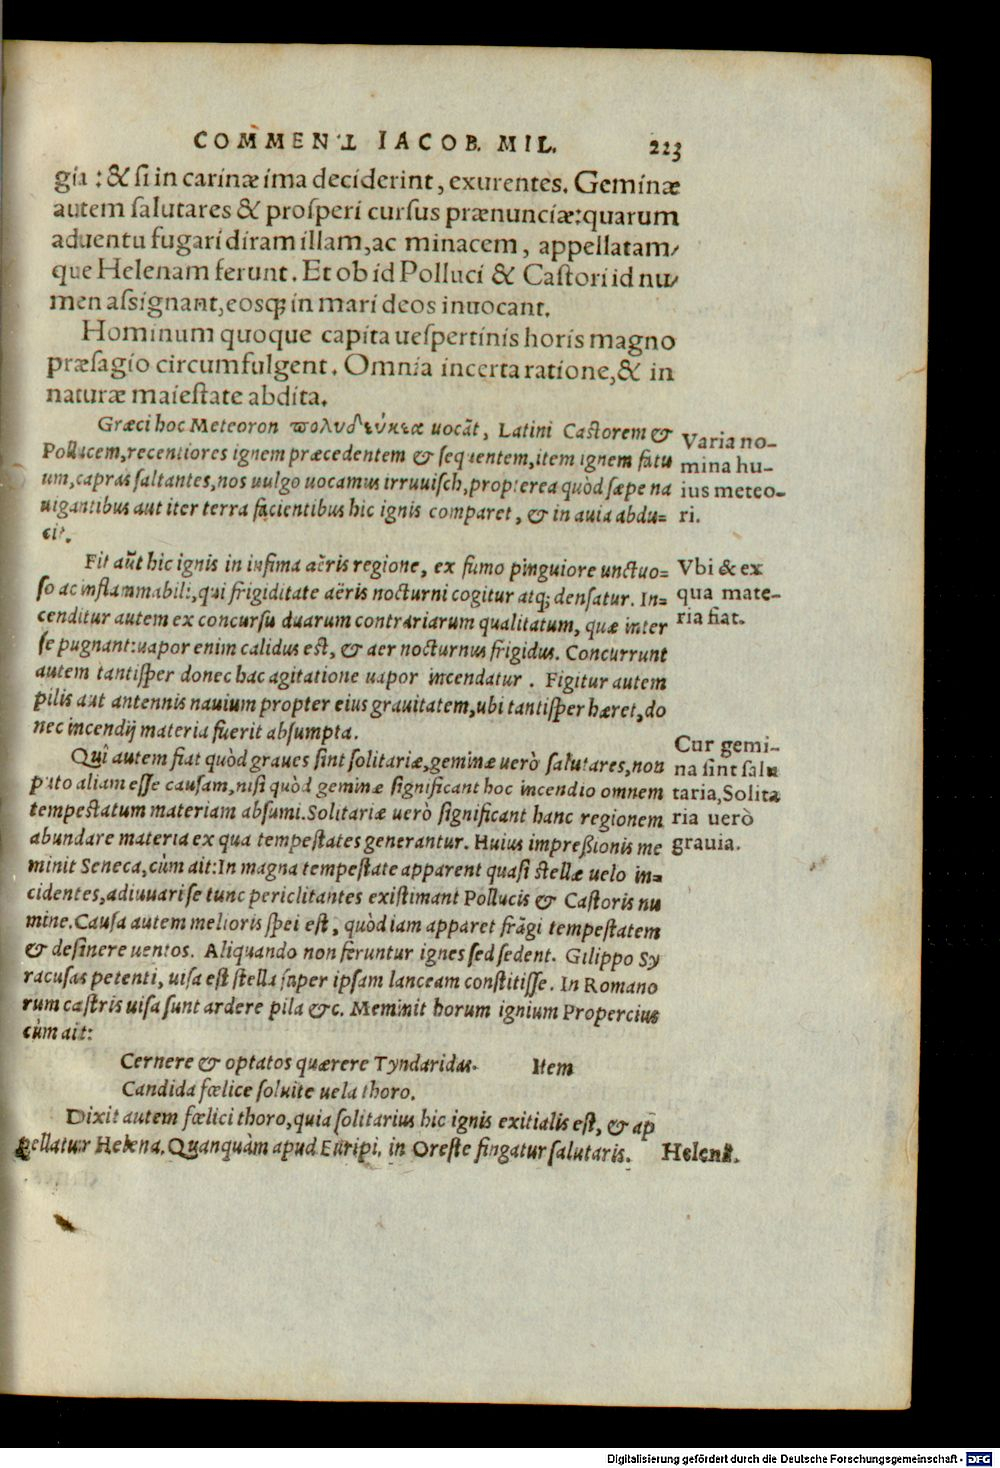 COMMENT IACOB. MIL. 223
gia : & si in carinæ ima deciderint, exurentes. Geminæ
autem salutares & prosperi cursus prænunciæ: quarum
aduentu fugari diram illam, ac minacem, appellatam/
que Helenam ferunt. Et ob id Polluci & Castori id nu/
men assignant, eosq; in mari deos inuocant.
Hominum quoque capita uespertinis horis magno
præsagio circumfulgent. Omnia incerta ratione, & in
naturæ maiestate abdita.
Græci hoc Meteoron πολυδεύκεα uocãt, Latini Castorem &
Pollucem, recentiores ignem præcedentem & sequentem, item ignem fatu
um, capras saltantes, nos uulgo uocamus irruuisch, propterea quòd sæpe na
uigantibus aut iter terra facientibus hic ignis comparet, & in auia abdu=
cit.
Varia no-
mina hu-
ius meteo-
ri.
Fit aũt hic ignis in infima aëris regione, ex fumo pinguiore unctuo=
so ac inflammabili, qui frigiditate aëris nocturni cogitur atq; densatur. In=
cenditur autem ex concursu duarum contrariarum qualitatum, quæ inter
se pugnant: uapor enim calidus est, & aer nocturnus frigidus. Concurrunt
autem tantisper donec hac agitatione uapor incendatur. Figitur autem
pilis aut antennis nauium propter eius grauitatem, ubi tantisper hæret, do
nec incendij materia fuerit absumpta.
Vbi & ex
qua mate-
ria fiat.
Qui autem fiat quòd graues sint solitariæ, geminæ uerò salutares, non
puto aliam esse causam, nisi quòd geminæ significant hoc incendio omnem
tempestatum materiam absumi. Solitariæ uerò significant hanc regionem
abundare materia ex qua tempestates generantur. Huius impreßionis me
minit Seneca, cùm ait: In magna tempestate apparent quasi stellæ uelo in=
cidentes, adiuuari se tunc periclitantes existimant Pollucis & Castoris nu
mine. Causa autem melioris spei est, quòd iam apparet frãgi tempestatem
& desinere uentos. Aliquando non feruntur ignes sed sedent. Gilippo Sy
racusas petenti, uisa est stella super ipsam lanceam constitisse. In Romano
rum castris uisa sunt ardere pila &c. Meminit horum ignium Propercius
cùm ait:
Cur gemi-
na sint salu
taria, Solita
ria uerò
grauia.
Cernere & optatos quærere Tyndaridas. Item
Candida fœlice soluite uela thoro.
Dixit autem fœlici thoro, quia solitarius hic ignis exitialis est, & ap
pellatur Helena. Quanquàm apud Euripi. in Oreste fingatur salutaris.
Helena.
Digitalisierung gefördert durch die Deutsche Forschungsgemeinschaft - DFG